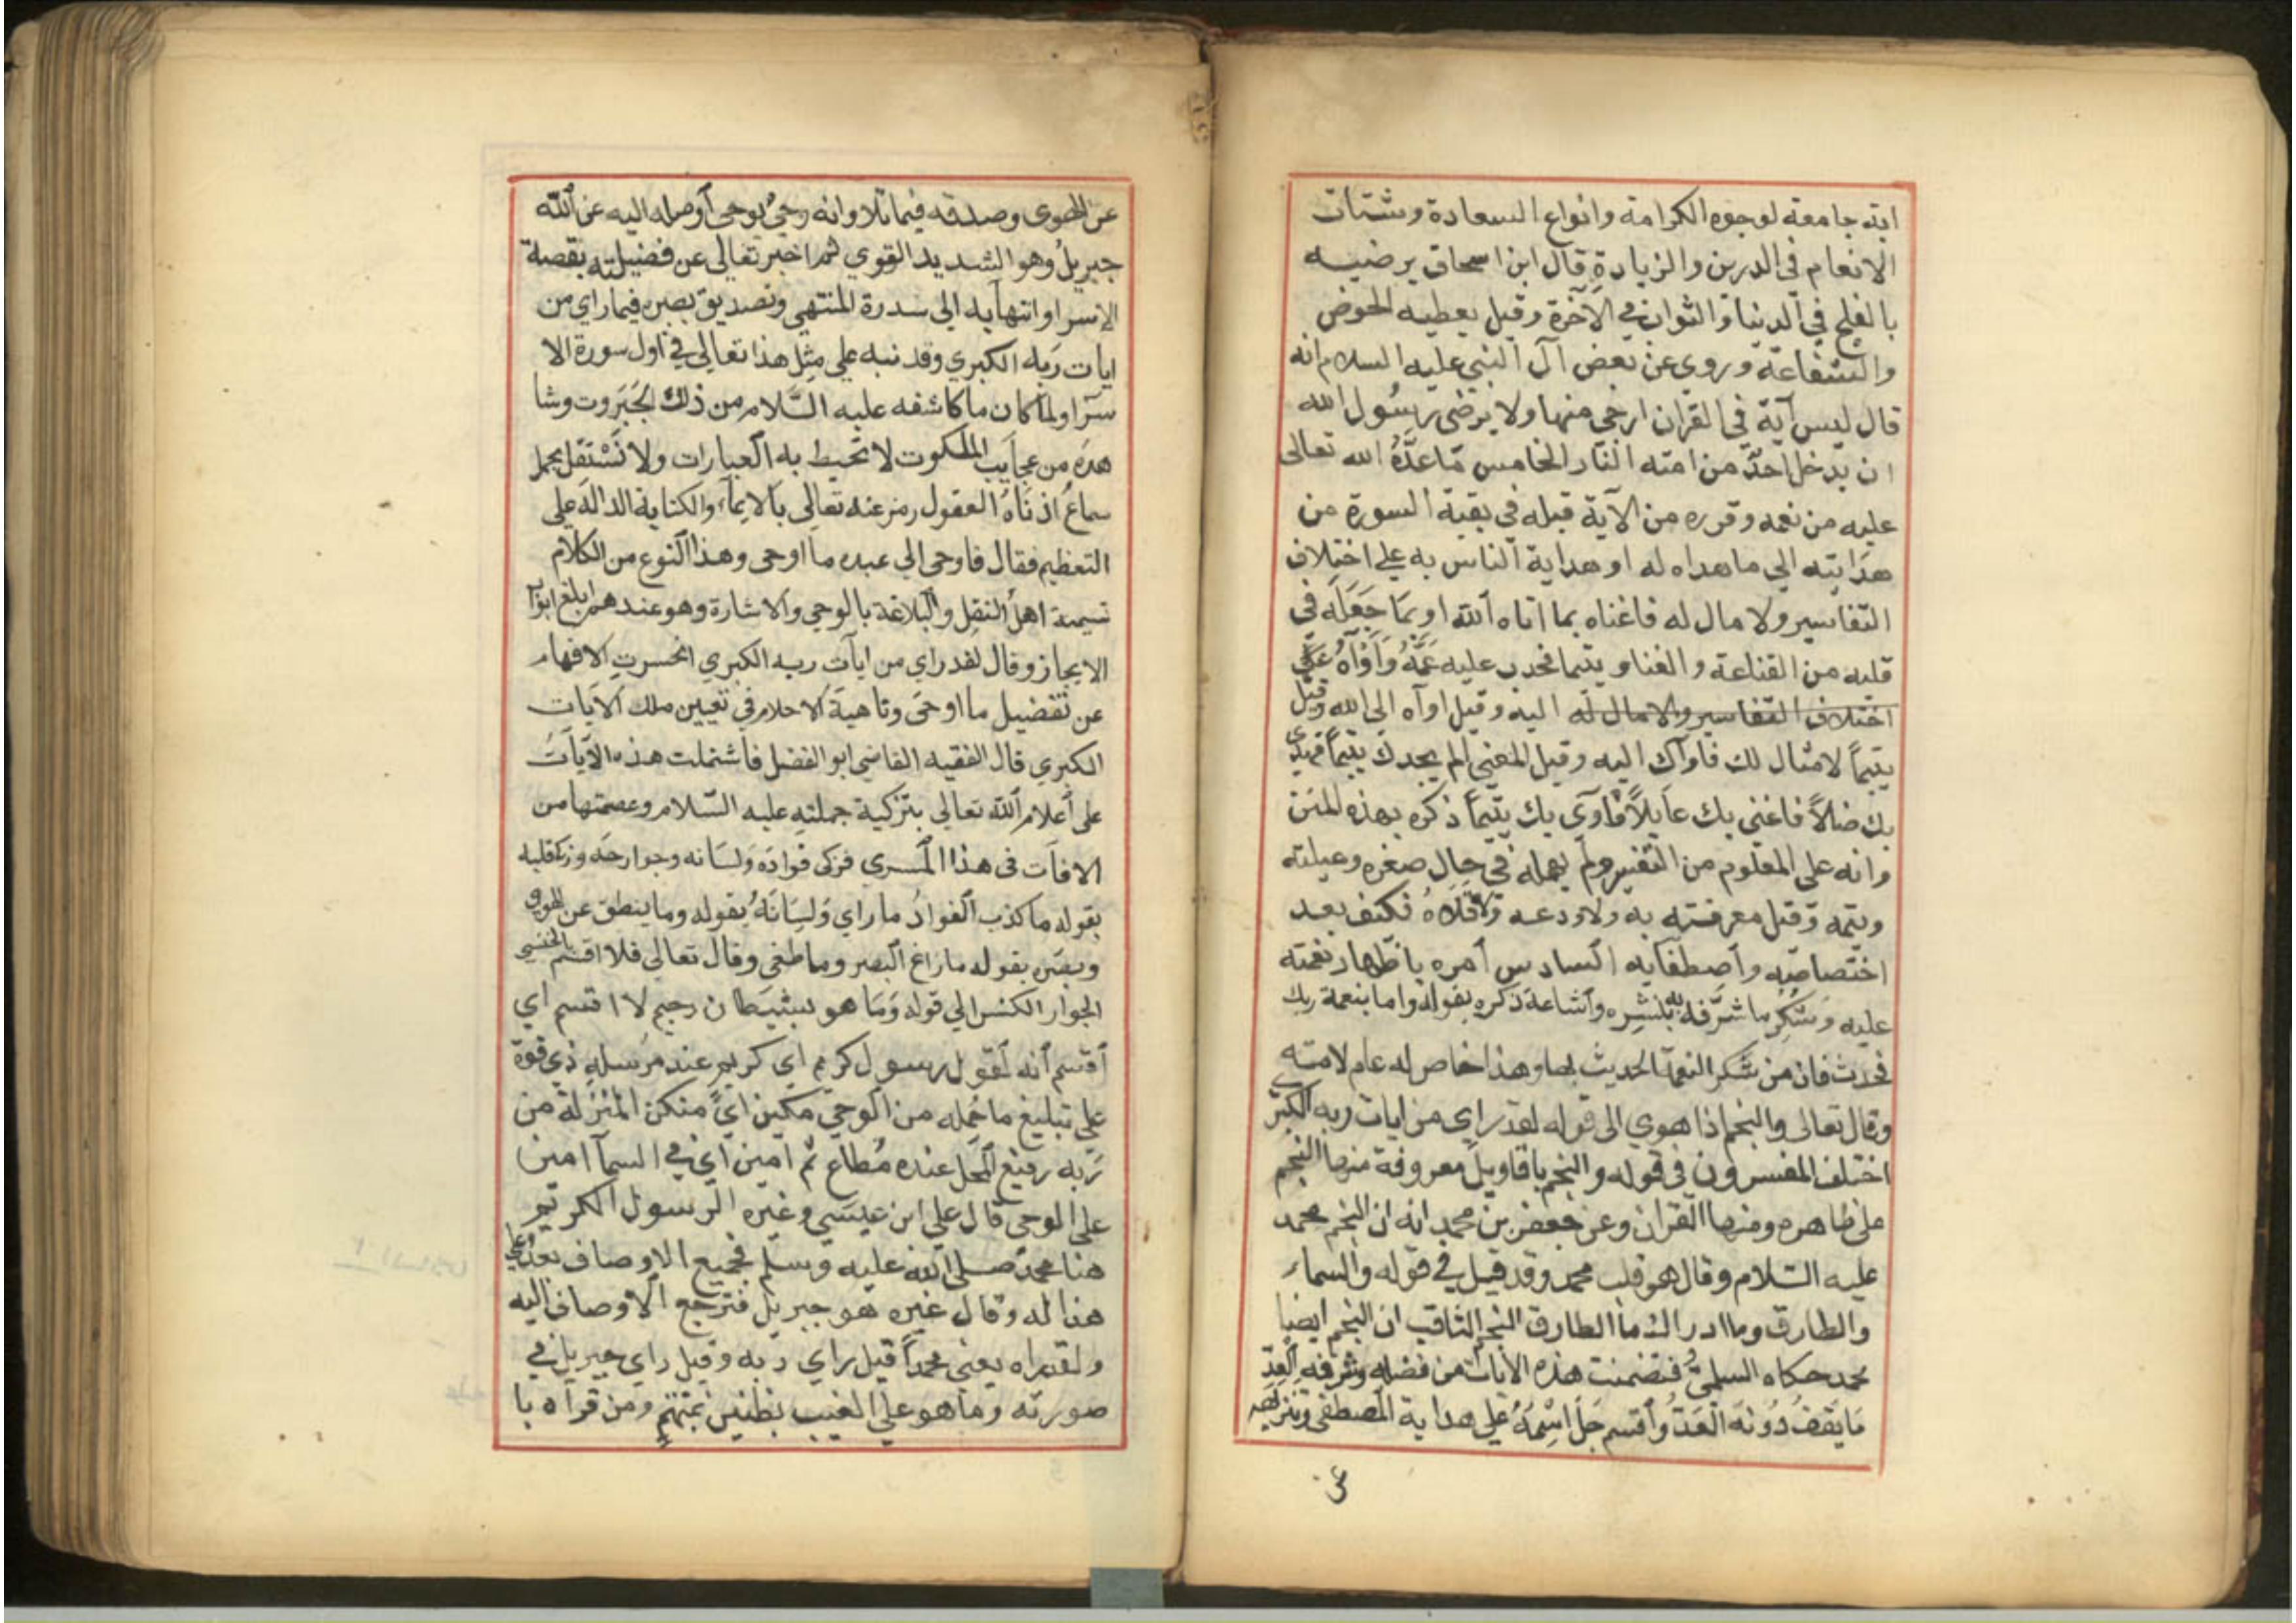 اية جامعة لوجوه الكرامة وانواع السعادة وشتات
الانعام في الدرين والزيادة قال ابن اسحاق يرضيه
بالفلج في الدنيا والثواب في الآخرة وقيل يعطيه الحوض
والشفاعة وروي عن بعض آل النبي عليه السلام انه
قال ليس آية في القران ارجى منها ولا يرضى رسول الله
ان يدخل احدٌ من امته النار الخامس مّا عدَّهُ الله تعالى
عليه من نعمه وقرره من الآية قبله في بقية السورة من
هدايته الي ما هداه له او هداية الناس به علي اختلاف
التفاسير ولا مال له فاغناه بما اتاه الله او بما جَعَلَه في
قلبه من القناعة والغنا ويتيما فحدب عليه عَمُّهُ وَآوَاهُ عَلَي
اختلاف التفاسير والامال له اليه وقيل اواه الي الله وقيل
يتيماً لا مثال لك فاواك اليه وقيل المعني الم يجدك يتيماً فهدى
بك ضالاً فاغني بك عايلاً وآوي بك يتيماً ذكره بهذه المنن
وانه على المعلوم من التفسير ولم يهمله في حال صغره وعيلته
ويتمه وقبل معرفته به ولا ودعه ولا قلاهُ فكيف بعد
اختصاصه واصطفايه السادس أمره باظهار نعمته
عليه وَشُكْرِ ما شرَّفه به بنشره واشاعة ذكره بقوله واما بنعمة ربك
فحدث فان من شكر النعمة الحديث بها وهذا خاص له عام لامته
وقال تعالى والنجم اذا هوي الى قوله لقد راي من ايات ربه الكبرى
اختلف المفسرون في قوله والنجم باقاويل معروفة منها النجم
على ظاهره ومنها القران وعن جعفر بن محمد انه ان النجم محمد
عليه السلام وقال هو قلب محمد وقد قيل في قوله والسماء
والطارق وما ادراك ما الطارق النجم الثاقب ان النجم ايضا
محمد حكاه السلمي فتضمنت هذه الايات من فضله وشرفه العِدّ
مَا يَقفُ دُونهَ العَدّ وُأقسم جَلّ اسْمَهُ علي هداية المصطفى وتنزيهه
عن
عن الهوى وصدقه فيما تلا وانه وحيٌ يوحى أوصله اليه عن الله
جبريلُ وهو الشديد القوي ثم اخبر تعالى عن فضيلته بقصة
الاسرا وانتهآيه الى سدرة المنتهي وتصديق بصره فيما راي من
ايات رَبه الكبري وقد نبه علي مثِل هذا تعالي في اول سورة الا
سرآ ولما كان ما كاشفه عليه السَّلام من ذلك الجَبَروت وشا
هده من عجايب الملكوت لا تحيط به العبارات ولا تَسْتَقل بحمل
سماع اذناهُ العقول رمز عنه تعالي بالايماء والكناية الدالة علي
التعظيم فقال فاوحى الي عبده ما اوحى وهذا النوع من الكلام
تسيمة اهل النقل والبلاغة بالوحي والاشارة وهو عندهم ابلغ ابواب
الايجاز وقال لقد راي من ايات ربه الكبري انحسرت الافهام
عن تفضيل ما اوحَى وتاهيةَ الاحلام في تعيين ملك الآيات
الكبري قال الفقيه القاضي ابو الفضل فاشتملت هذه الآياتُ
على أعلام الله تعالي بتزكية جملته عليه السّلام وعصمتها من
الافات في هذا المسري فزكي فوادَه وَلسَانه وجوارحَه وزكا قلبه
بقوله ما كذب الفوادُ ما راي وَلِسَانَهُ بقوله وما ينطق عن الهوى
وبصَره بقوله ما زاغ البصر وما طغى وقال تعالي فلا اقسم بالخنس
الجوار الكنس الي قوله وَمَا هو بشيَطان رجيم لا اقسم اي
أقسم أنه لَقول رسول كريم اي كريم عند مرُسله ذي قوة
علي تبليغ ما حُمله من الوحي مكين ايً متمكن المنزلة من
رَبه رفيع المحل عنده مُطاع ثم امين اي في السمآ امين
على الوحي قال علي ابن عيسَي وغيره الرسول الكريم
هنا محمدٌ صلى الله عليه وسلم فجميع الاوصاف بعدُ علي
هذا له وقال غيره هو جبريل فترجع الاوصاف اليه
ولقد راه يعني محمداً قيل راي ربه وقيل راي جبريل في
صورته وما هو علي الغيب بظنين بمتهم ومن قرآه با